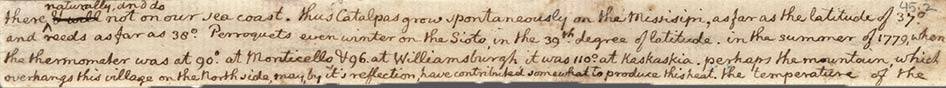 naturally, and do
there not on our sea coast. thus Catalpas grow spontaneously on the Missisipi, as far as the latitude of 37.°
and reeds as far as 38°. Perroquets even winter on the Sioto, in the 39th degree of latitude. in the summer of 1779, when
the thermometer was at 90°. at Monticello & 96. at Williamsburgh it was 110.° at Kaskaskia. perhaps the mountain, which
overhangs this village on the North side, may, by it's reflection, have contributed somewhat to produce this heat. the temperature of the